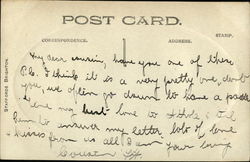 POST CARD.
CORRESPONDENCE. ADDRESS. STAMP.
STAFFORDS, BRIGHTON.
My dear cousin, have you one of these
P.C. I think it is a very pretty one, don't
you, we often go down to have a
love to
to answer my letter. lots of love
kisses from us all I am your loving
Cousin